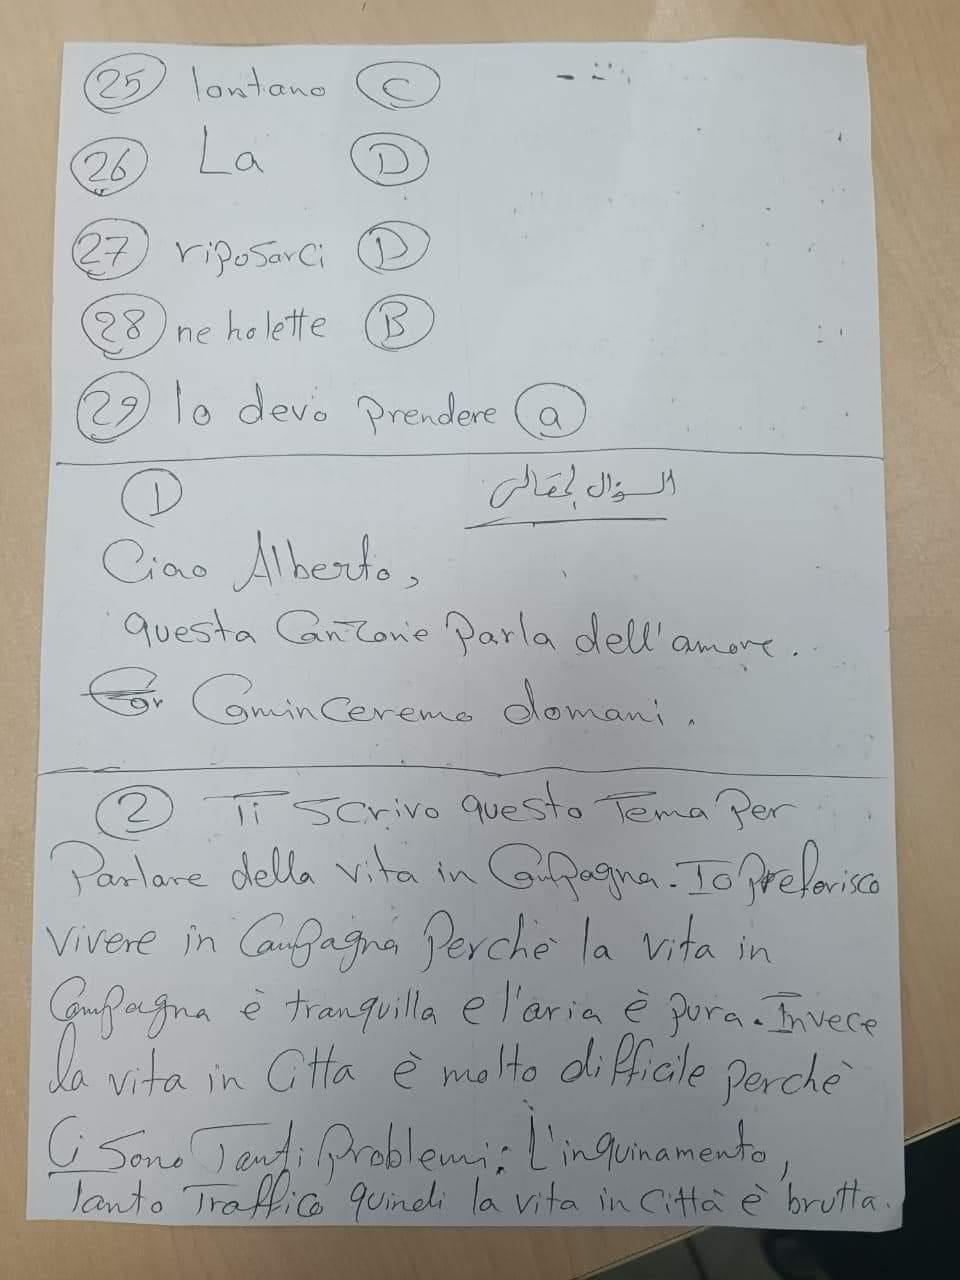 25 lontano C
26 La D
27 riposarci D
28 ne ho lette B
29 lo devo prendere a
1 السؤال المقالى
Ciao Alberto,
questa Canzone Parla dell'amore.
Cominceremo domani.
2 Ti scrivo questo Tema Per
Parlare della vita in Campagna. Io Preferisco
vivere in Campagna Perchè la vita in
Campagna è tranquilla e l'aria è pura. Invece
la vita in Città è molto difficile perchè
Ci sono Tanti Problemi: L'inquinamento,
Tanto Traffico quindi la vita in città è brutta.